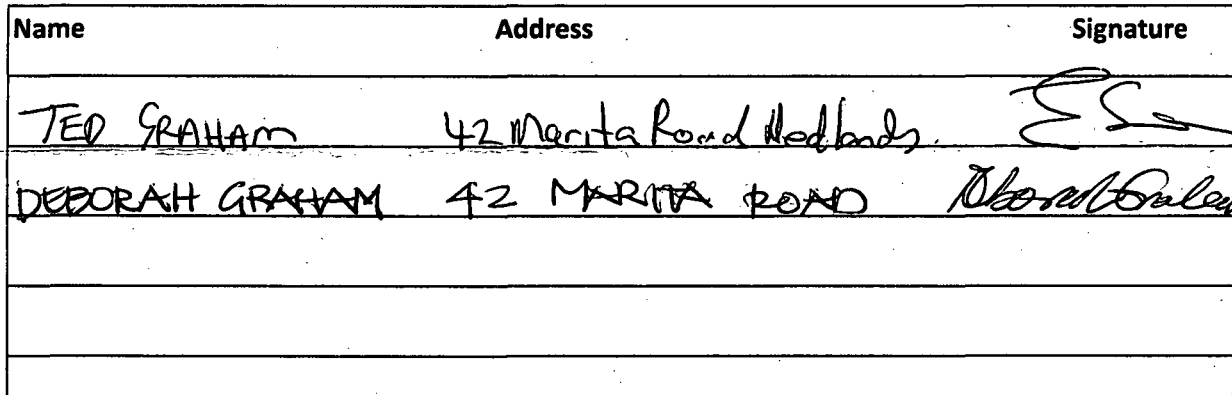 Name Address Signature
TED GRAHAM 42 Marita Road Nedlands.
DEBORAH GRAHAM 42 MARITA ROAD